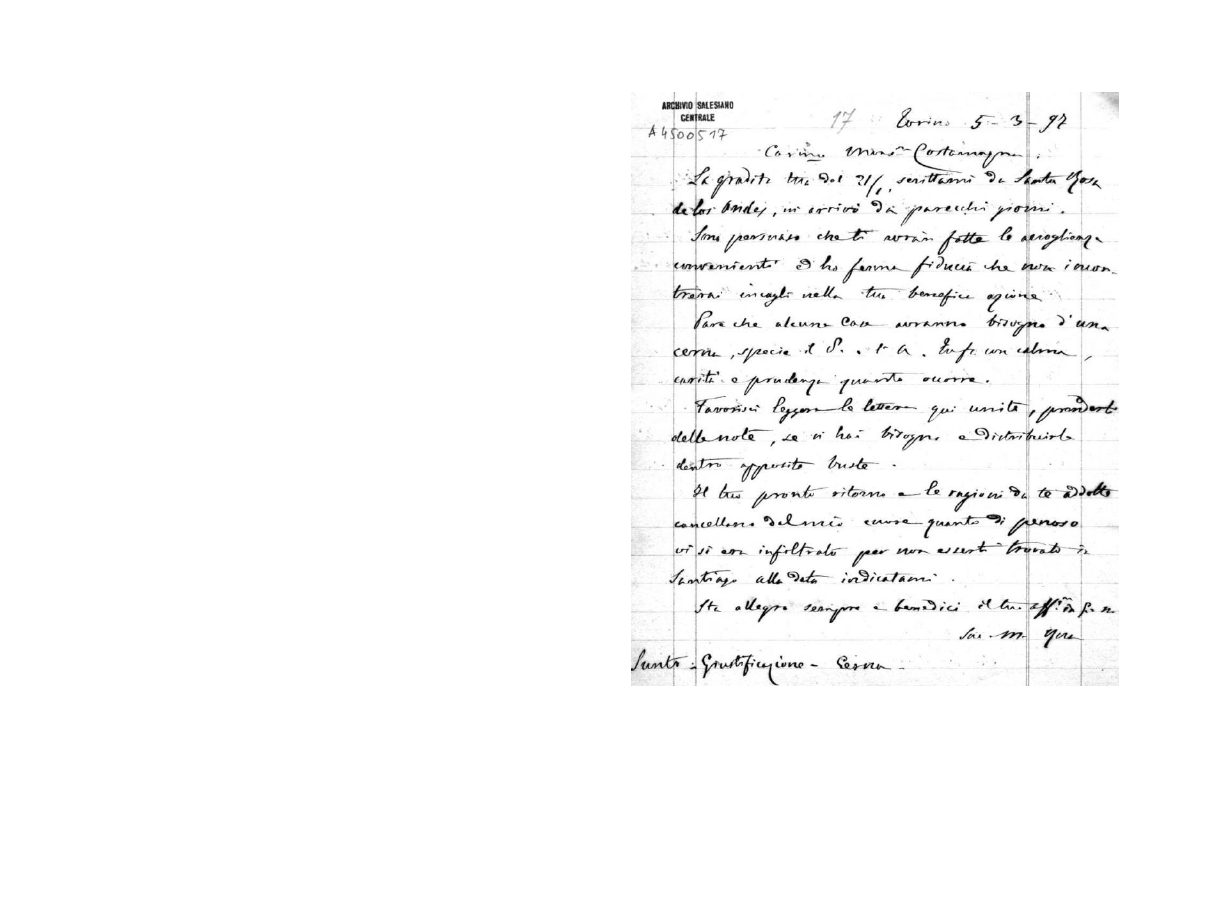 ARCHIVIO SALESIANO
CENTRALE
A4500517
17 Torino 5-3-97
Car.mo Mons.r Costamagna,
La gradita tua del 21/1, scrittami da Santa Rosa
de los Andes, mi arrivò da parecchi giorni.
Sono persuaso che ti avran fatte le accoglienze
convenienti e ho ferma fiducia che non incon-
trerai incagli nella tua benefica azione.
Pare che alcune Case avranno bisogno d'una
cerna, specie il S. . Tu fa con calma,
carità e prudenza quanto occorre.
Favorisci leggere le lettere qui unite, prenderti
delle note, se vi hai bisogno e distribuirle
dentro apposite buste.
Il tuo pronto ritorno e le ragioni da te addotte
cancellano dal mio cuore quanto di penoso
vi si era infiltrato per non esserti trovato in
Santiago alla data indicatami.
Sta allegro sempre e benedici il tuo aff.mo in
Sac. M. Rua
Sunto = Giustificazione - Cerna -